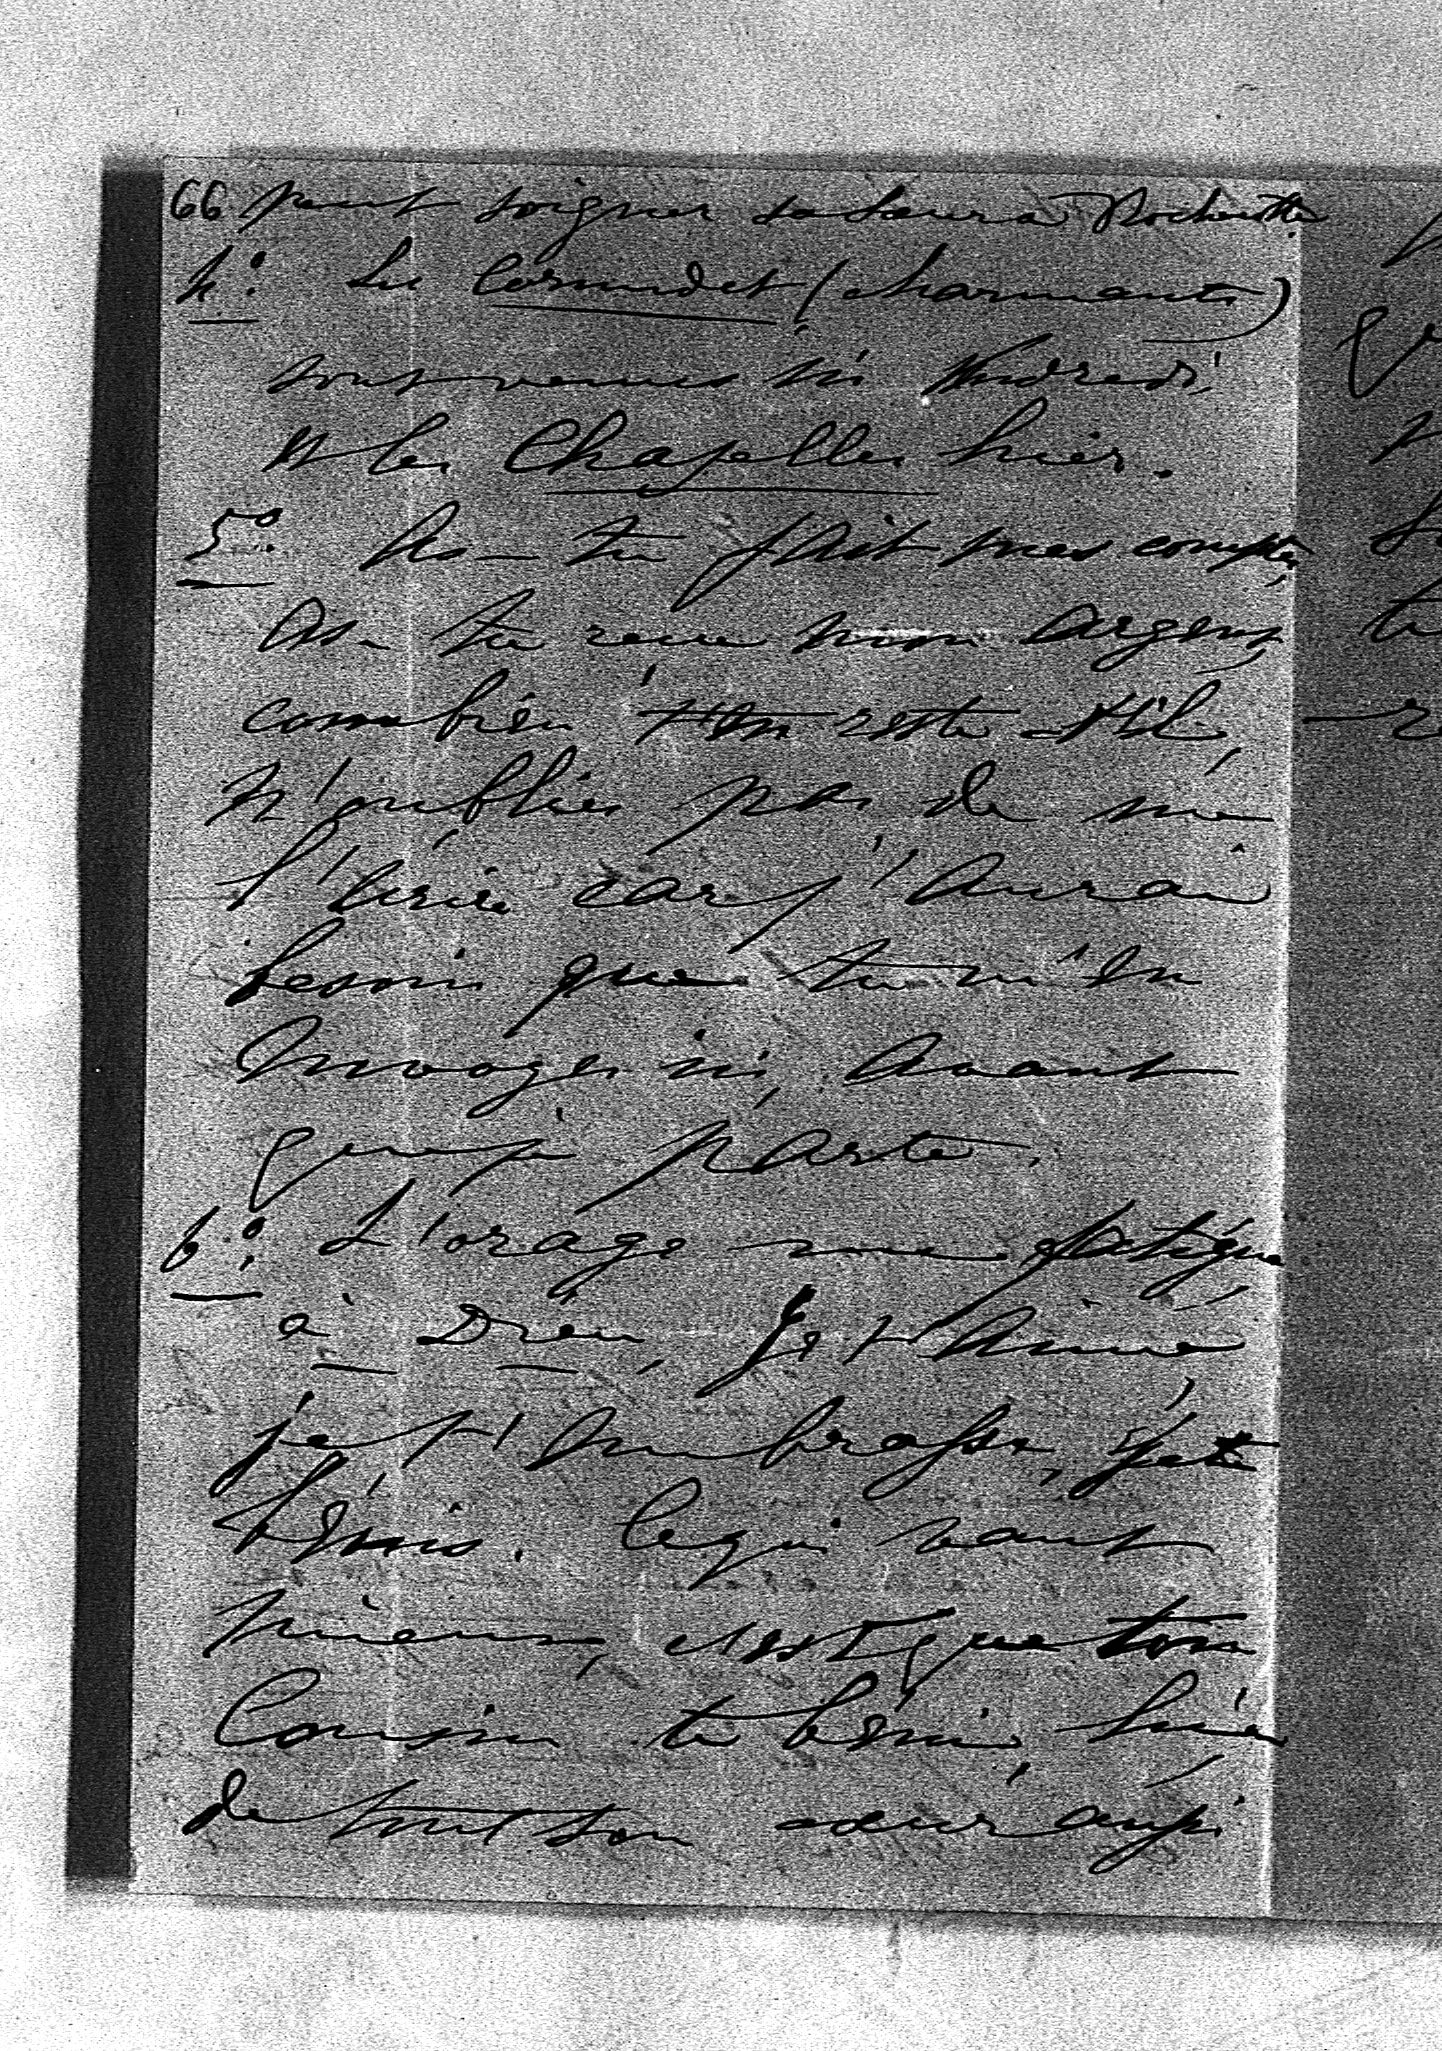 66 peut soigner sa Laura Rochenoth
4.° Les Cornudet (charmants)
sont venus ici Vendredi,
et les Chapelles hier.
5.° As-tu fait mes comptes,
As-tu reçu mon argent,
combien t'en reste-t'il,
N'oublies pas, de me
l'écrire, car j'aurai
besoin que tu m'en
envoyes ici, avant
que je parte.
6.° L'orage me fatigue,
à Dieu, Je t'aime,
je t'embrasse, je te
bénis. Ce qui vaut
mieux, c'est que ton
Cousin te bénis, hier,
de tout son cœur aussi